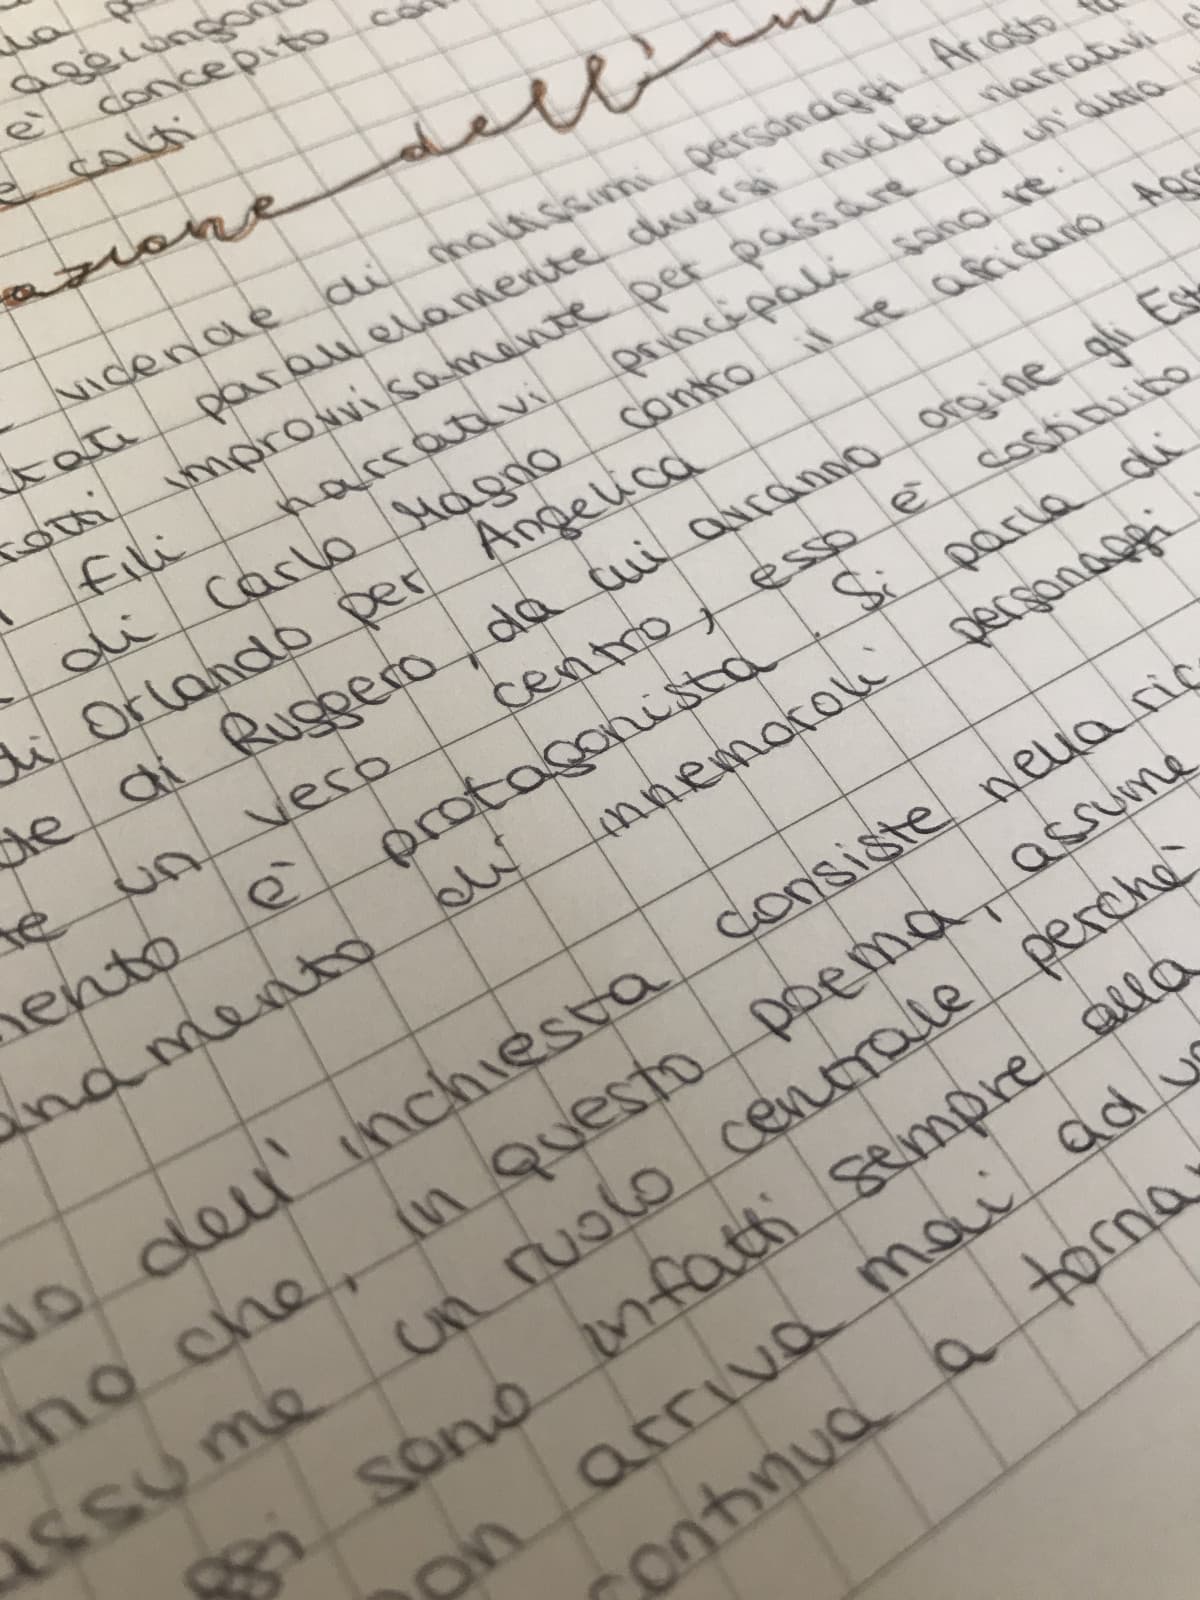 aggiungono
e' concepito con
e colti
azione dell'in
vicende di moltissimi personaggi. Ariosto fa
parallelamente diversi nuclei narrativi
improvvisamente per passare ad un'altra
fili narrativi principali sono tre:
di Carlo Magno contro il re africano Agra
di Orlando per Angelica
de di Ruggero, da cui avranno orgine gli Est
te un vero centro, esso e' costituito
mento e' protagonista. Si parla di
namento di innemaroli personaggi
vo dell'inchiesta consiste nella ric
eno che, in questo poema, assume
assume un ruolo centrale perche'
ggi sono infatti sempre alla
non arriva mai ad un
continua a torna